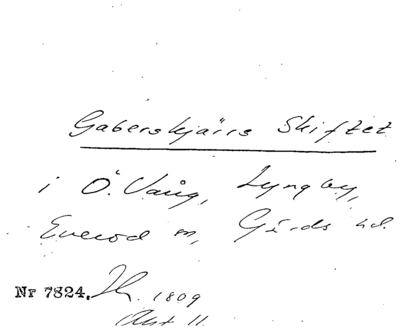 Gaberskjärs Skiftet
i Ö. Vång, Lyngby,
Everöd m, Gärds hd.
Nr 7824. Jh. 1809
Akt 11